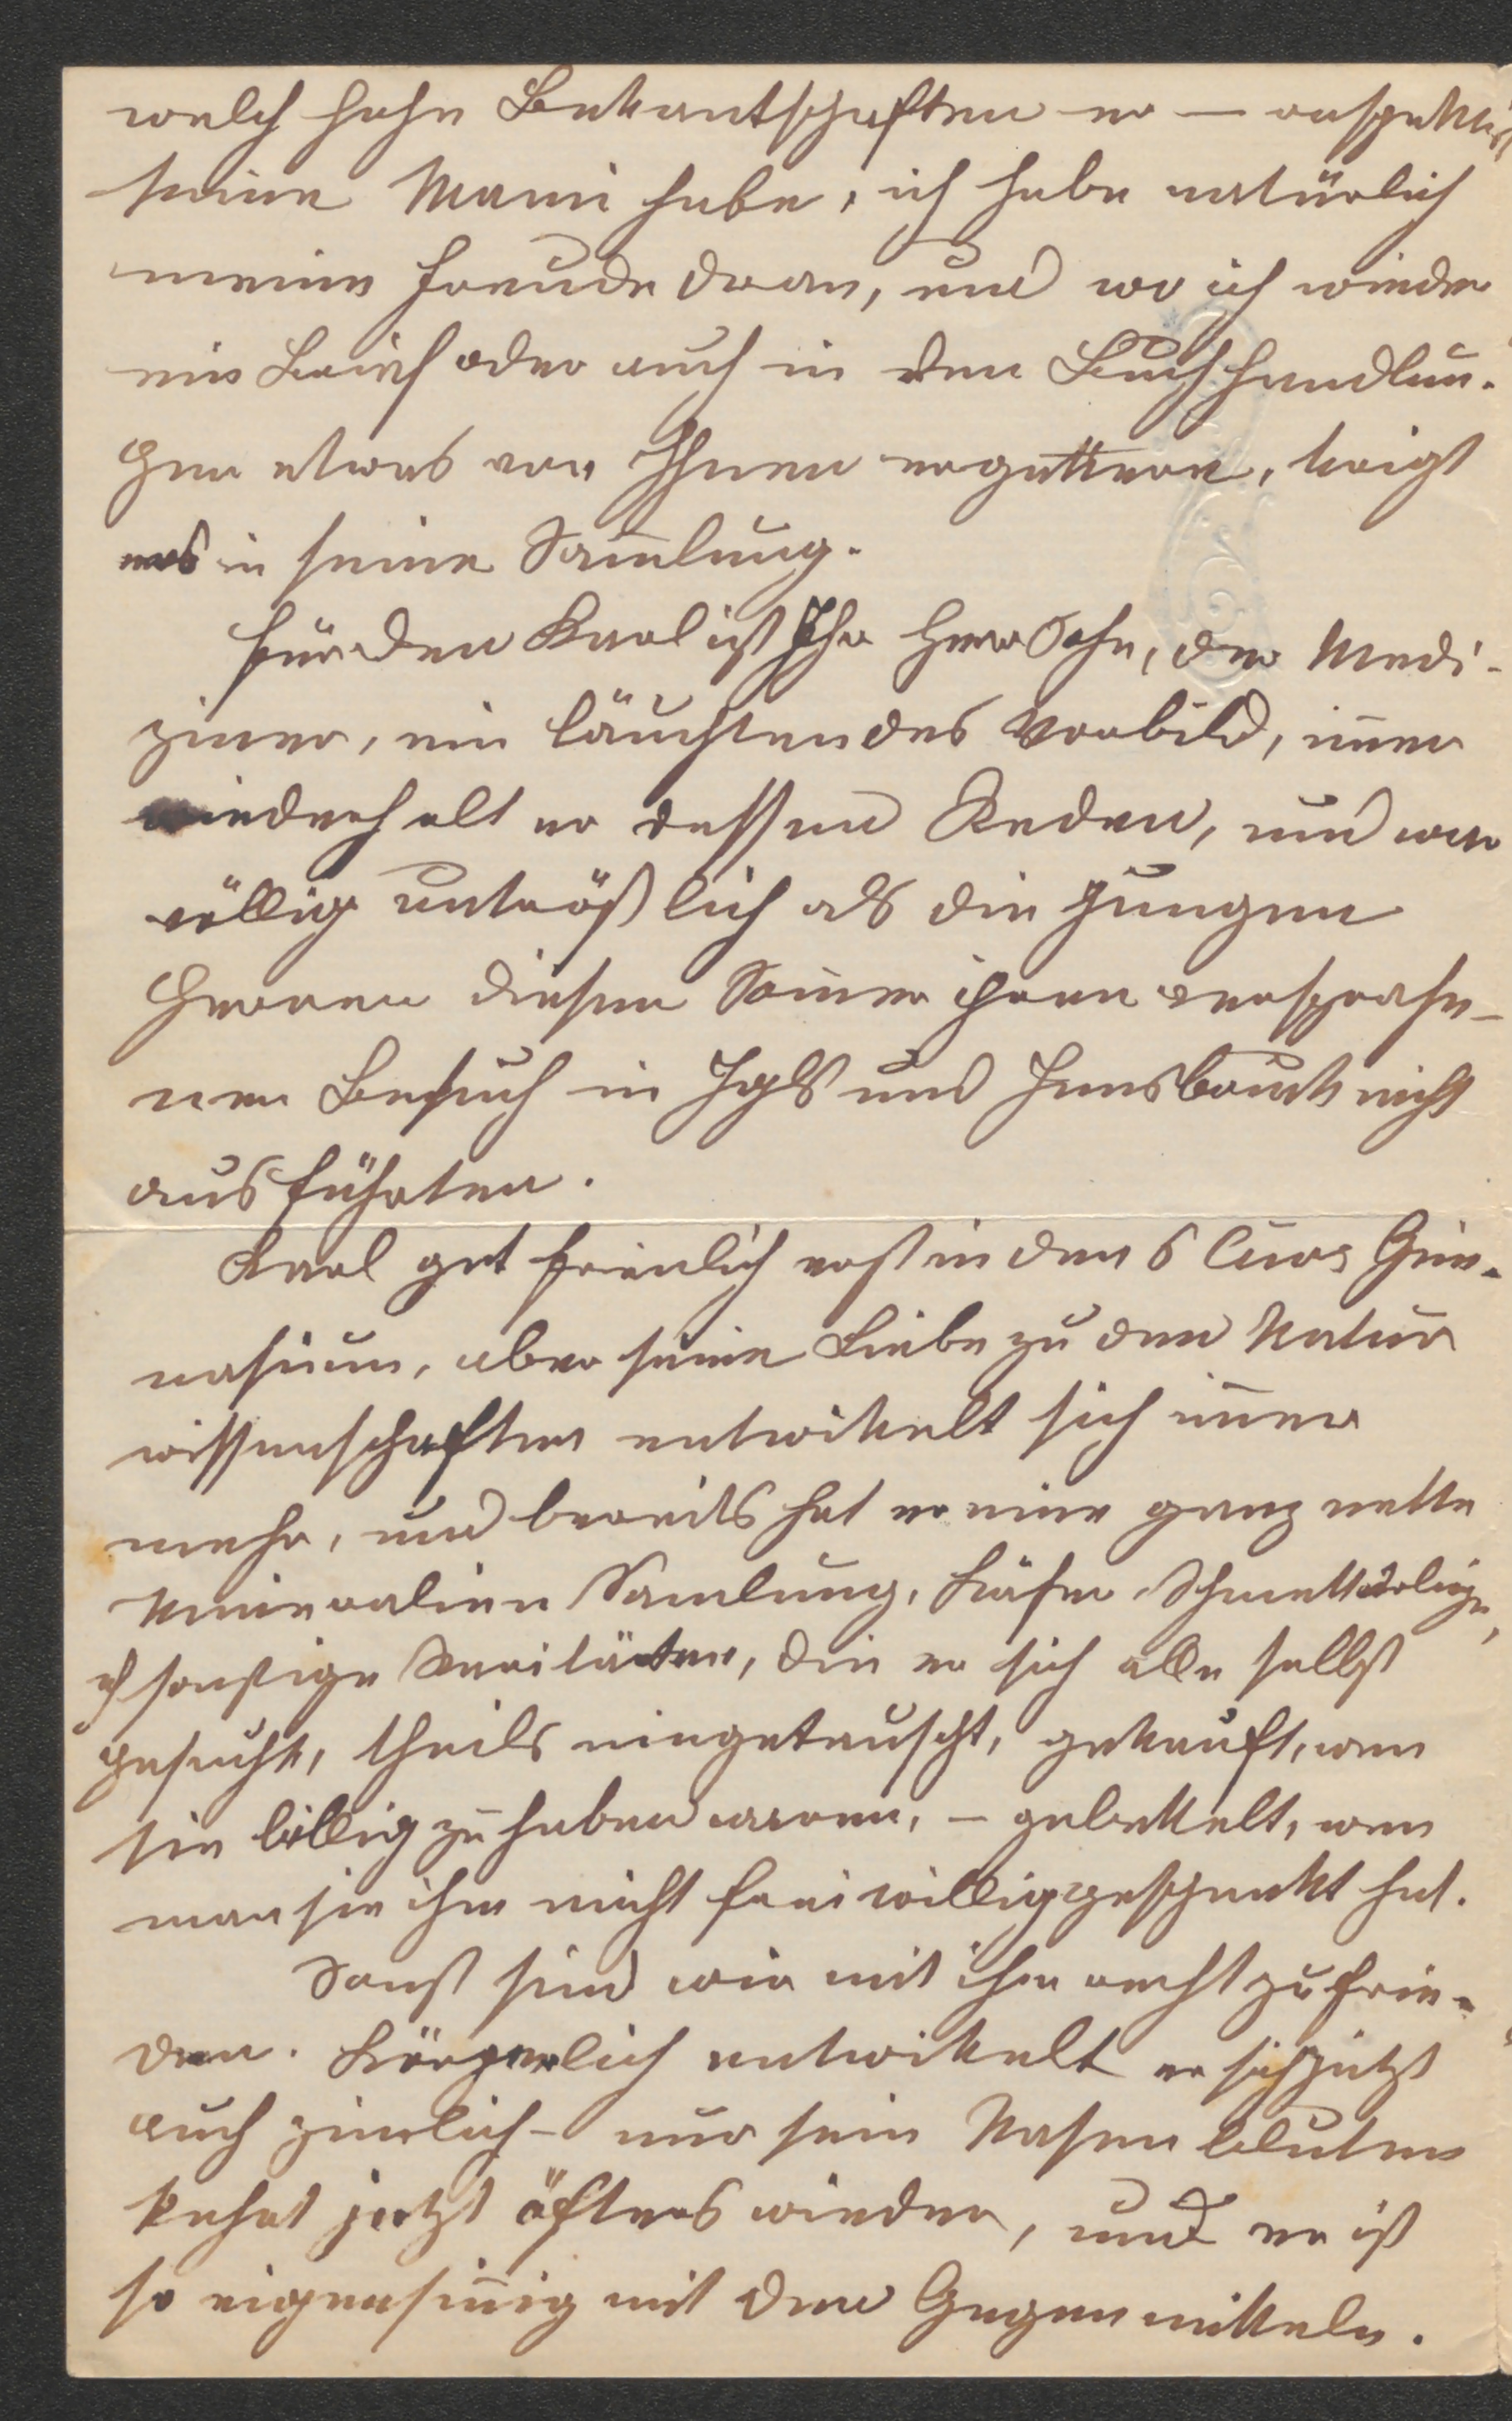 welch hohe Bekantschaften er — respektiv
seine Mami habe, ich habe natürlich
meine Freude dran, und wo ich wieder
ein Brief oder auch in den Buchhandlun-
gen etwas von Ihnen ergattere, krigt
ers in seine Sam̅lung.
Für den Karl ist Ihr Herr Sohn, der Medi-
ziner, ein läuchtendes Vorbild, im̅er
wiederholt er dessen Reden, und war
völlig untröstlich als die Jungen
Herren diesen Som̅er ihren versproche-
nen Besuch in Igls und Innsbruck nicht
ausführten.
Karl get freilich erst in den 6 Curs Gim-
nasium, aber seine Liebe zu den Natur
wissenschaften entwikelt sich im̅er
mehr, und bereits hat er eine ganz nette
Mineralien Samlung, Käfer Schmetterlinge,
sonstige Raritäten, die er sich alle selbst
gesucht, theils eingetauscht, gekauft, wen
sie billig zu haben waren, – gebettelt, wen
man sie ihm nicht freiwillig geschenkt hat.
Sonst sind wir mit ihm recht zufrie-
den. Körperlich entwikelt er sich jetzt
auch zimlich – nur sein Nasenbluten
kehrt jetzt öfters wieder, und er ist
so eigensin̅ig mit den Gegenmitteln.